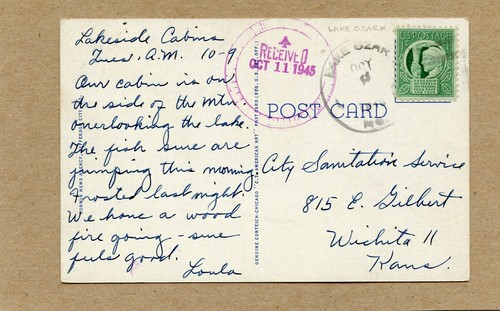 Lakeside Cabins
Tues. A.M. 10-9
Our cabin is on
the side of the Mtn.
overlooking the lake.
The fish sure are
jumping this morning
Frosted last night.
We have a wood
fire going - sure
feels good.
Loula
GENUINE CURTEICH-CHICAGO "C.T. AMERICAN ART" POST CARD
RECEIVED
OCT 11 1945
LAKE OZARK
LAKE OZARK
OCT
MO.
U.S. POSTAGE
POST CARD
City Sanitation Service
815 E. Gilbert
Wichita 11
Kans.